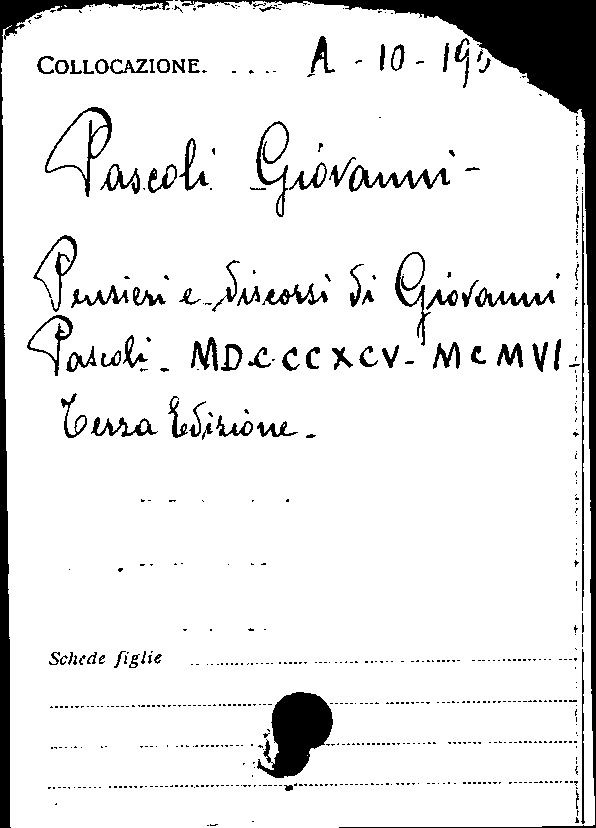 COLLOCAZIONE. .... A - 10 - 195
Pascoli Giovanni -
Pensieri e discorsi di Giovanni
Pascoli - MDCCCXCV - MCMVI -
Terza Edizione -
Schede figlie